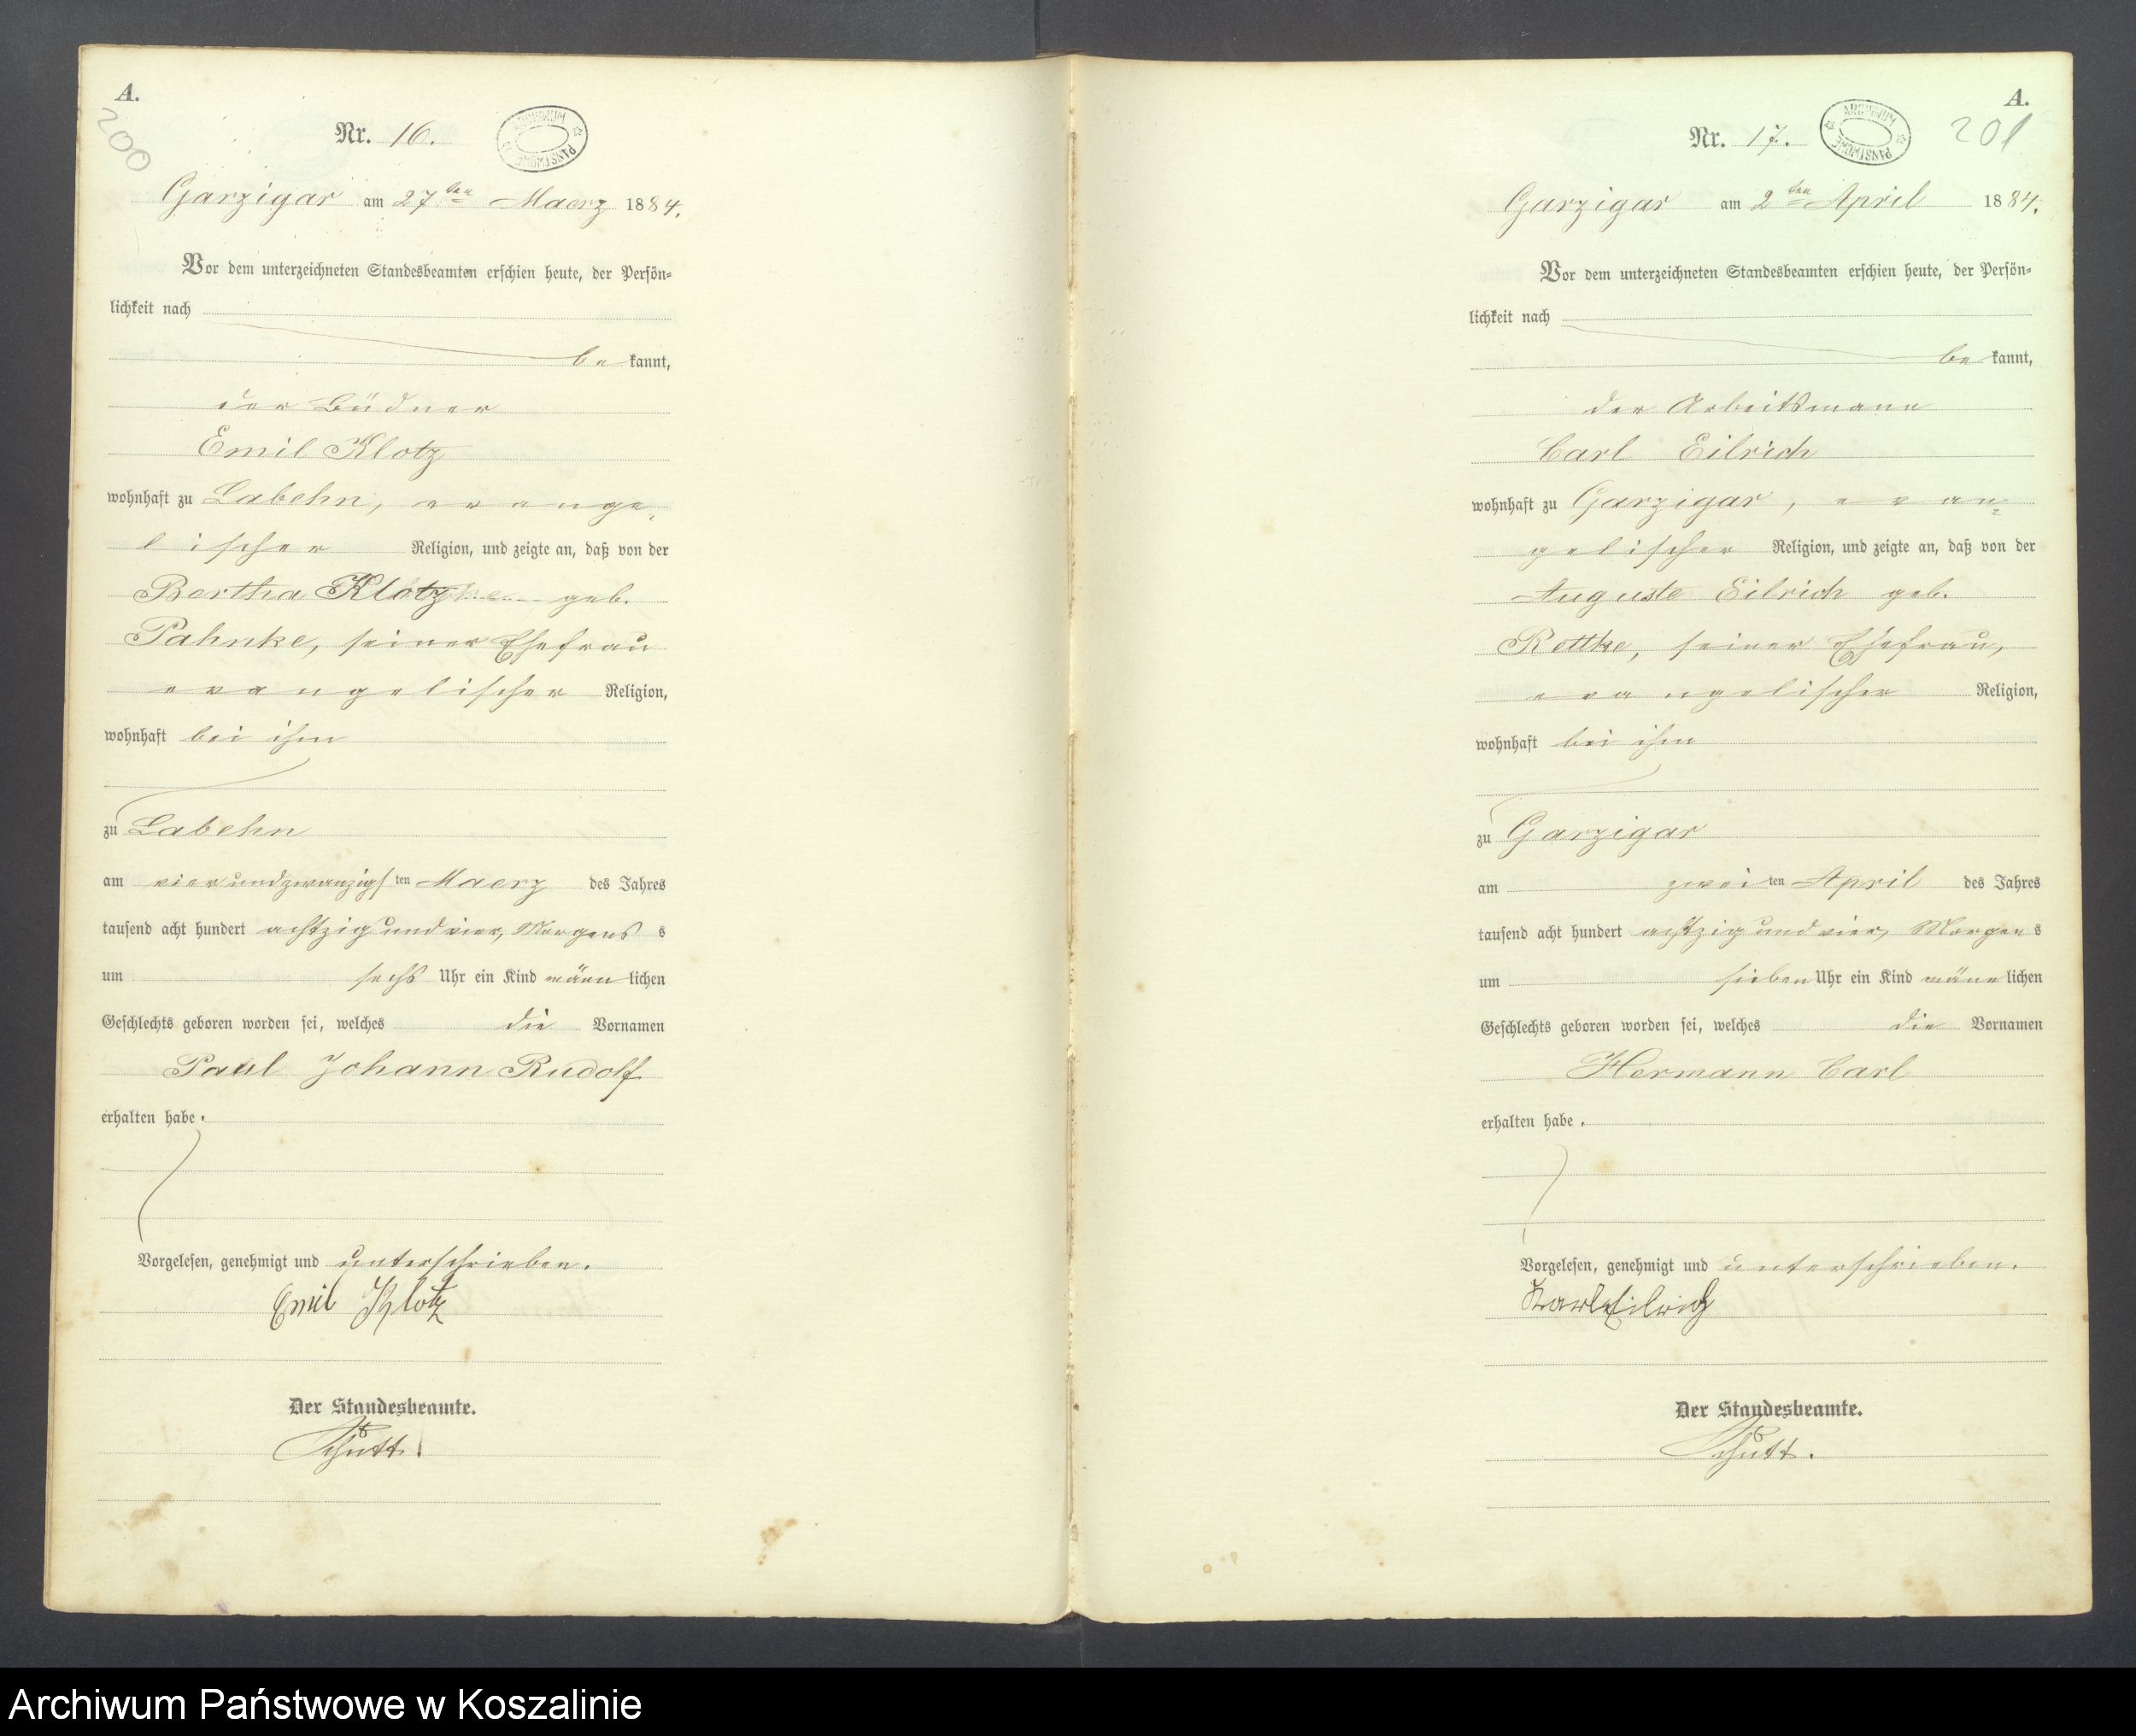 A.
200
Nr. 16.
ARCHIWUM PAŃSTWOWE
Garzigar am 27ten Maerz 1884.
Vor dem unterzeichneten Standesbeamten erschien heute, der Persön=
lichkeit nach
be kannt,
der Büdner
Emil Klotz
wohnhaft zu Labehn, evange=
lischer Religion, und zeigte an, daß von der
Bertha Klotz geb.
Pahnke, seiner Ehefrau
evangelischer Religion,
wohnhaft bei ihm
zu Labehn
am vierundzwanzigsten Maerz des Jahres
tausend acht hundert achtzig und vier, Morgens s
um sechs Uhr ein Kind männlichen
Geschlechts geboren worden sei, welches die Vornamen
Paul Johann Rudolf
erhalten habe.
Vorgelesen, genehmigt und unterschrieben.
Emil Klotz
Der Standesbeamte.
Schütt.
A.
201
Nr. 17.
ARCHIWUM PAŃSTWOWE
Garzigar am 2ten April 1884.
Vor dem unterzeichneten Standesbeamten erschien heute, der Persön=
lichkeit nach
be kannt,
der Arbeitsmann
Carl Eilrich
wohnhaft zu Garzigar, evan=
gelischer Religion, und zeigte an, daß von der
Auguste Eilrich geb.
Rettke, seiner Ehefrau,
evangelischer Religion,
wohnhaft bei ihm
zu Garzigar
am zweiten April des Jahres
tausend acht hundert achtzig und vier, Morgens
um sieben Uhr ein Kind männlichen
Geschlechts geboren worden sei, welches die Vornamen
Hermann Carl
erhalten habe.
Vorgelesen, genehmigt und unterschrieben.
Karl Eilrich
Der Standesbeamte.
Schütt.
Archiwum Państwowe w Koszalinie